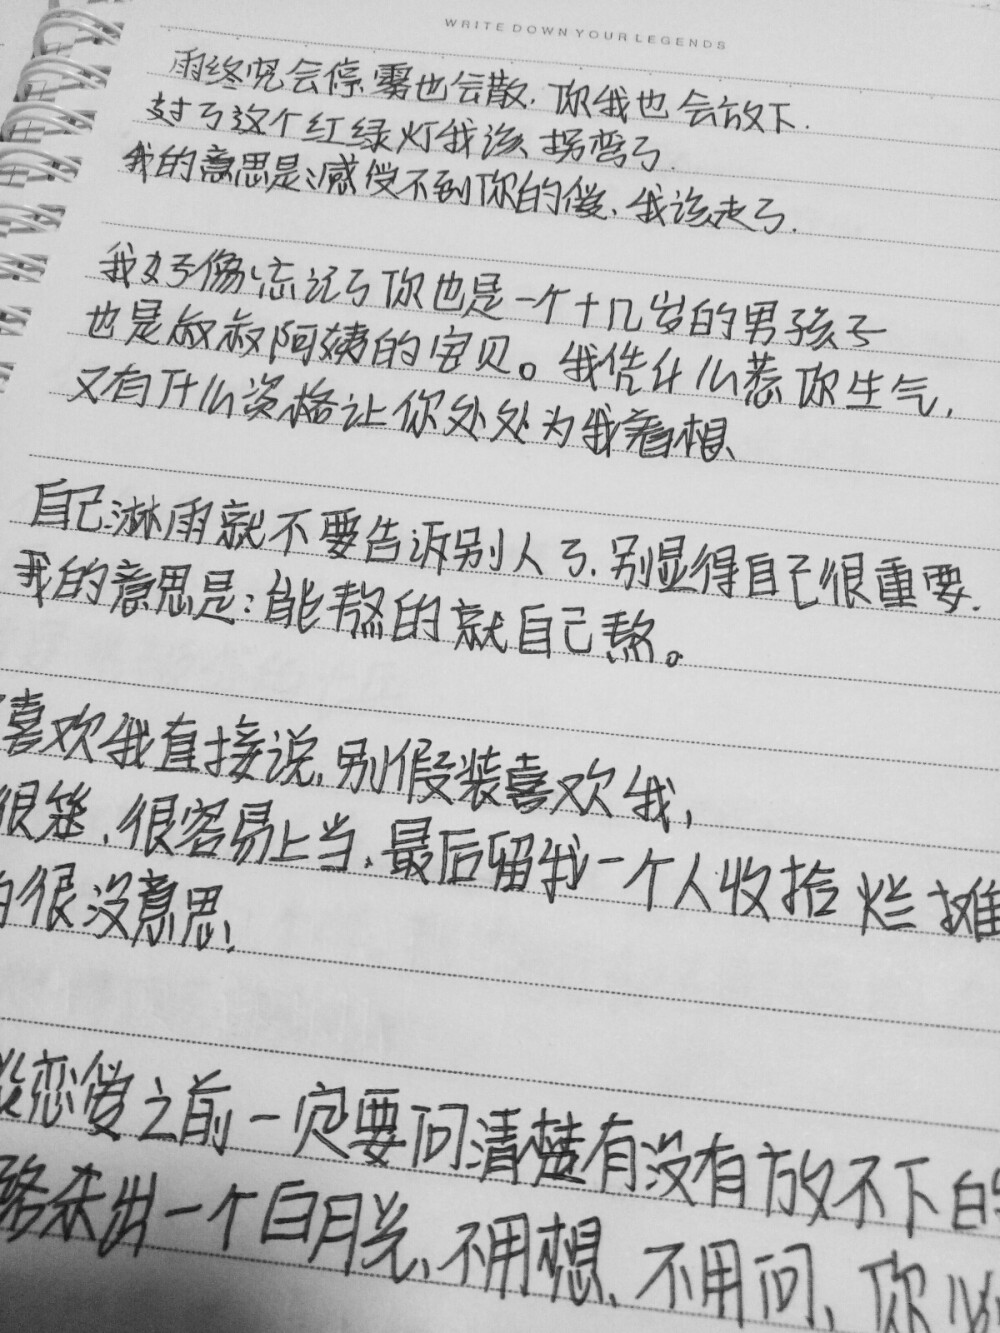 WRITE DOWN YOUR LEGENDS
雨终究会停,雾也会散.你我也会放下.
过了这个红绿灯我该拐弯了.
我的意思是:感受不到你的爱、我该走了.
我好像忘记了你也是一个十几岁的男孩子
也是叔叔阿姨的宝贝。我凭什么惹你生气,
又有什么资格让你处处为我着想、
自己淋雨就不要告诉别人了.别显得自己很重要.
我的意思是:能熬的就自己熬。
喜欢我直接说,别假装喜欢我,
很笨,很容易上当,最后留我一个人收拾烂摊
的很没意思!
谈恋爱之前一定要问清楚有没有放不下的
路杀出一个白月光、不用想、不用问、你